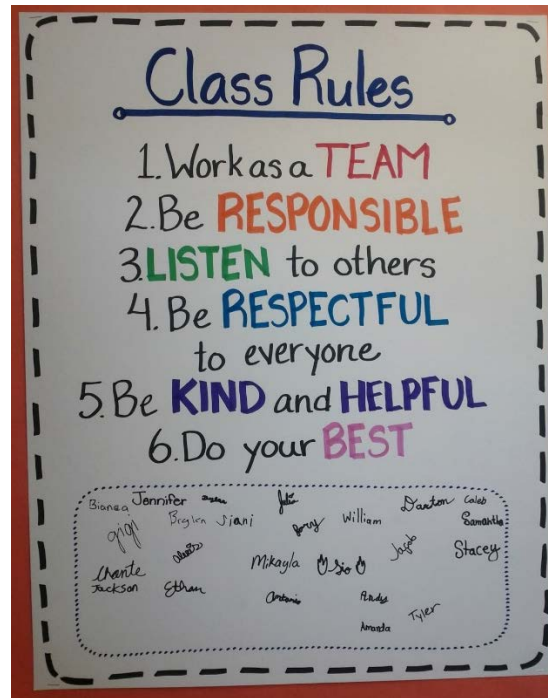 Class Rules
1. Work as a TEAM
2. Be RESPONSIBLE
3. LISTEN to others
4. Be RESPECTFUL
to everyone
5. Be KIND and HELPFUL
6. Do your BEST
Bianca Jennifer Julia Daxton Caleb
gigi Braylen Jiani Rory William Samantha
Alexis Mikayla Sio Jacob Stacey
Chante
Jackson Ethan Antonio Andy
Amanda Tyler